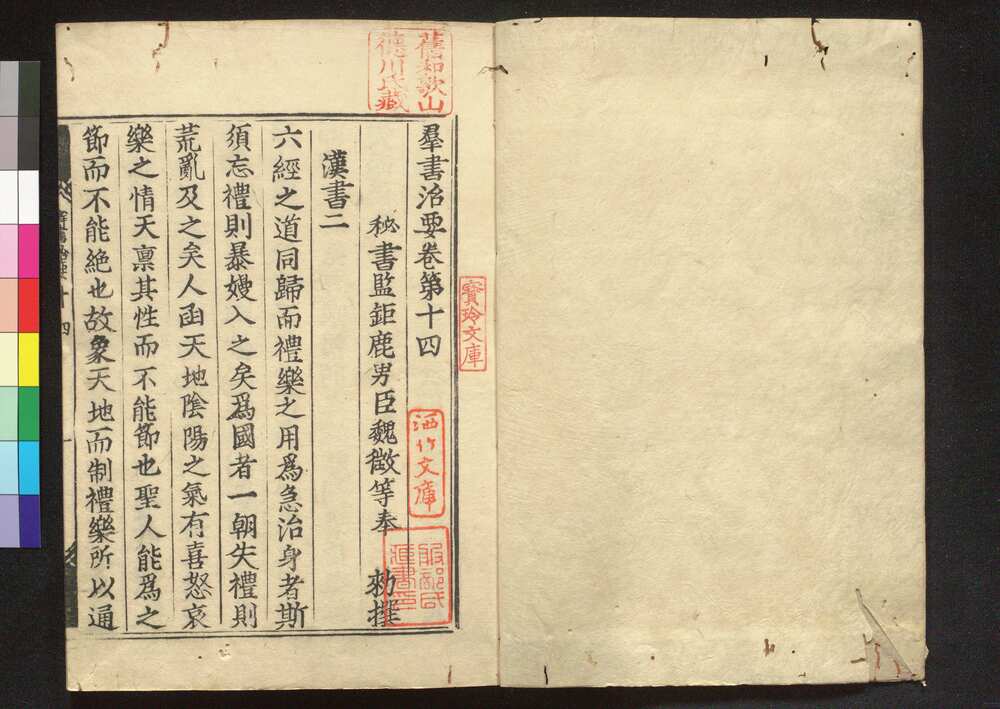 羣書治要卷第十四
秘書監鉅鹿男臣魏徵等奉 勑撰
漢書二
六經之道同歸而禮樂之用爲急治身者斯
須忘禮則暴嫚入之矣爲國者一朝失禮則
荒亂及之矣人函天地陰陽之氣有喜怒哀
樂之情天禀其性而不能節也聖人能爲之
節而不能絶也故象天地而制禮樂所以通
舊和歌山
德川氏藏
寶玲文庫
洒竹文庫
服部氏